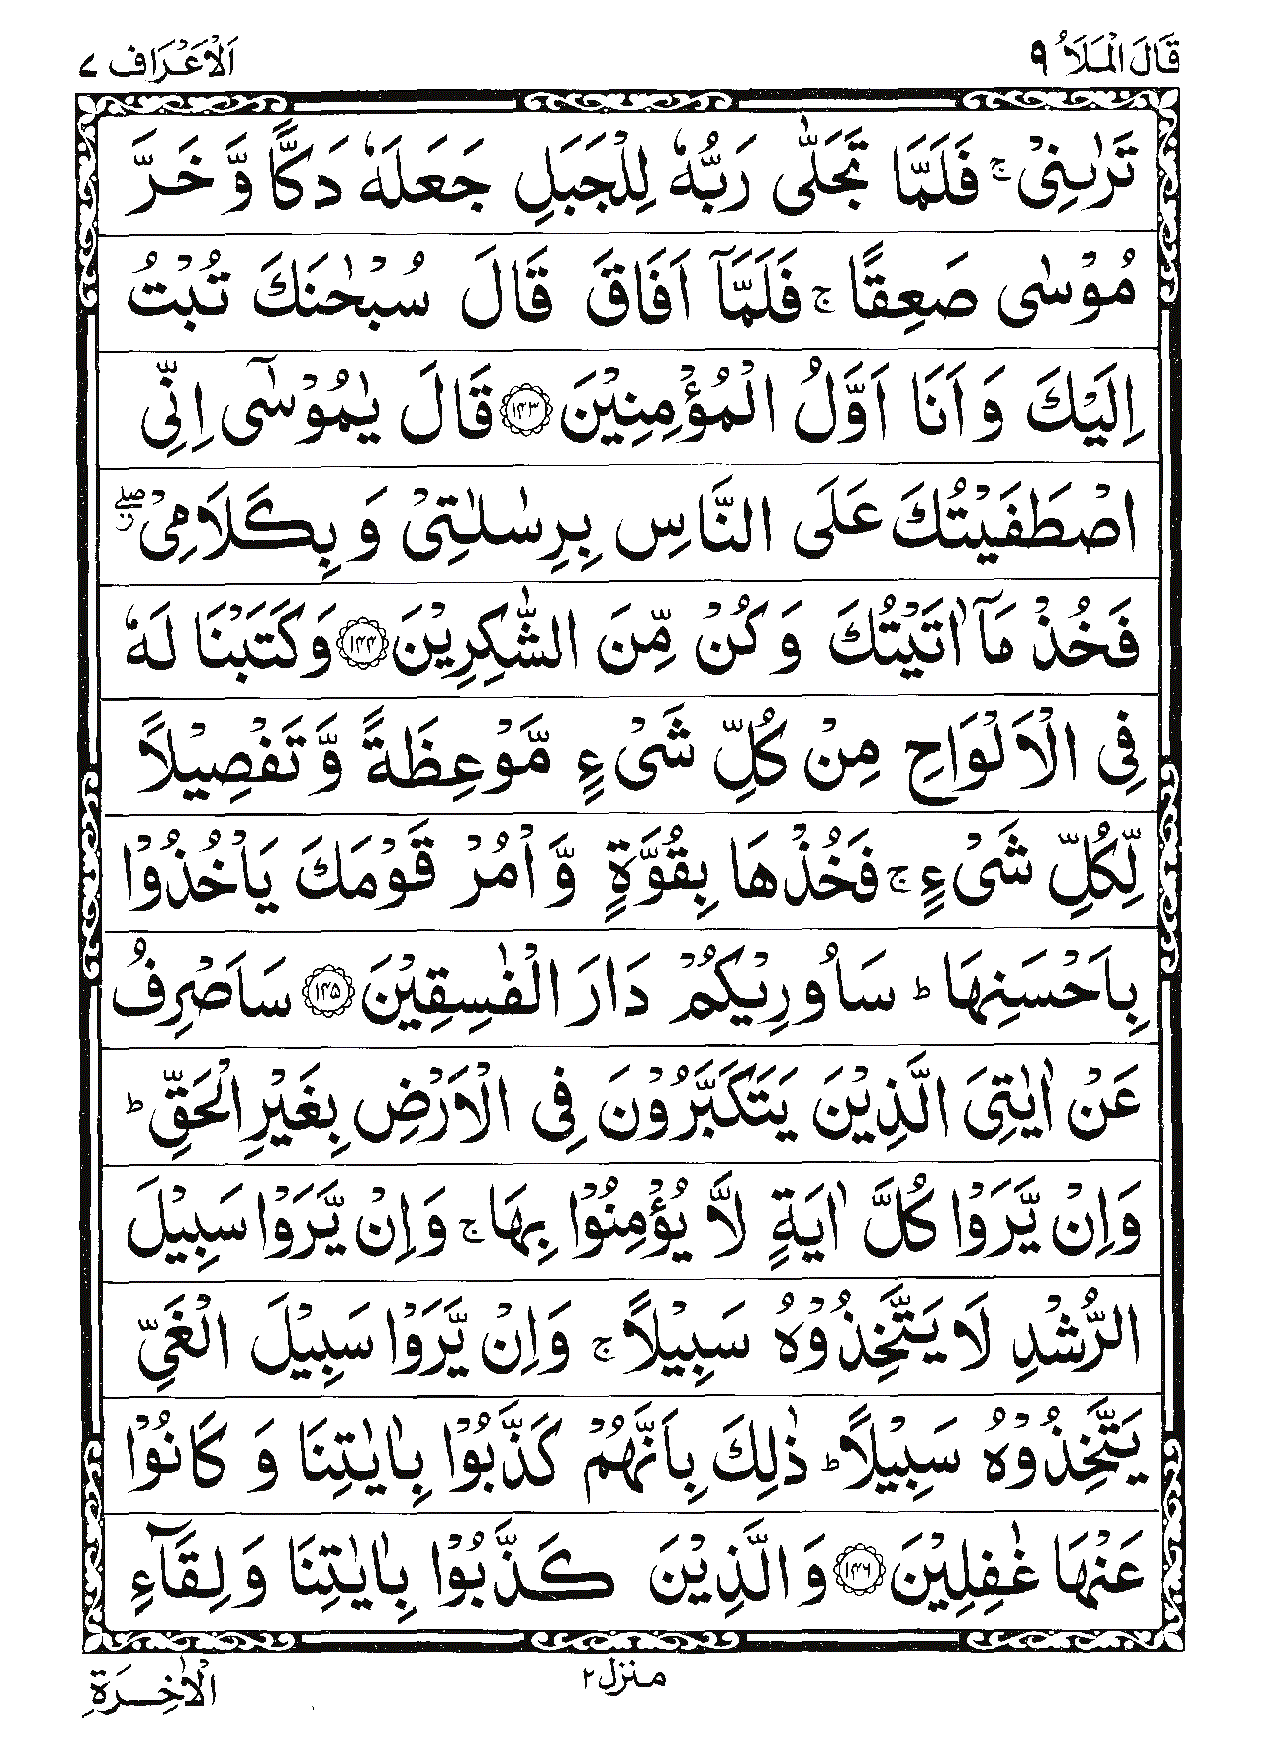 قَالَ الْمَلَاُ ٩ اَلْاَعْرَاف ٧
تَرٰىنِيْ ۚ فَلَمَّا تَجَلّٰى رَبُّهٗ لِلْجَبَلِ جَعَلَهٗ دَكًّا وَّ خَرَّ
مُوْسٰى صَعِقًا ۚ فَلَمَّاۤ اَفَاقَ قَالَ سُبْحٰنَكَ تُبْتُ
اِلَيْكَ وَ اَنَا اَوَّلُ الْمُؤْمِنِيْنَ ﴿۱۴۳﴾ قَالَ يٰمُوْسٰۤى اِنِّي
اصْطَفَيْتُكَ عَلَى النَّاسِ بِرِسٰلٰتِيْ وَ بِكَلَامِيْ ۖ
فَخُذْ مَاۤ اٰتَيْتُكَ وَ كُنْ مِّنَ الشّٰكِرِيْنَ ﴿۱۴۴﴾ وَكَتَبْنَا لَهٗ
فِي الْاَلْوَاحِ مِنْ كُلِّ شَيْءٍ مَّوْعِظَةً وَّ تَفْصِيْلًا
لِّكُلِّ شَيْءٍ ۚ فَخُذْهَا بِقُوَّةٍ وَّ اْمُرْ قَوْمَكَ يَاْخُذُوْا
بِاَحْسَنِهَا ؕ سَاُورِيْكُمْ دَارَ الْفٰسِقِيْنَ ﴿۱۴۵﴾ سَاَصْرِفُ
عَنْ اٰيٰتِيَ الَّذِيْنَ يَتَكَبَّرُوْنَ فِي الْاَرْضِ بِغَيْرِ الْحَقِّ ؕ
وَاِنْ يَّرَوْا كُلَّ اٰيَةٍ لَّا يُؤْمِنُوْا بِهَا ۚ وَاِنْ يَّرَوْا سَبِيْلَ
الرُّشْدِ لَا يَتَّخِذُوْهُ سَبِيْلًا ۚ وَاِنْ يَّرَوْا سَبِيْلَ الْغَيِّ
يَتَّخِذُوْهُ سَبِيْلًا ؕ ذٰلِكَ بِاَنَّهُمْ كَذَّبُوْا بِاٰيٰتِنَا وَ كَانُوْا
عَنْهَا غٰفِلِيْنَ ﴿۱۴۶﴾ وَ الَّذِيْنَ كَذَّبُوْا بِاٰيٰتِنَا وَ لِقَآءِ
منزل ٢
الْاٰخِرَةِ